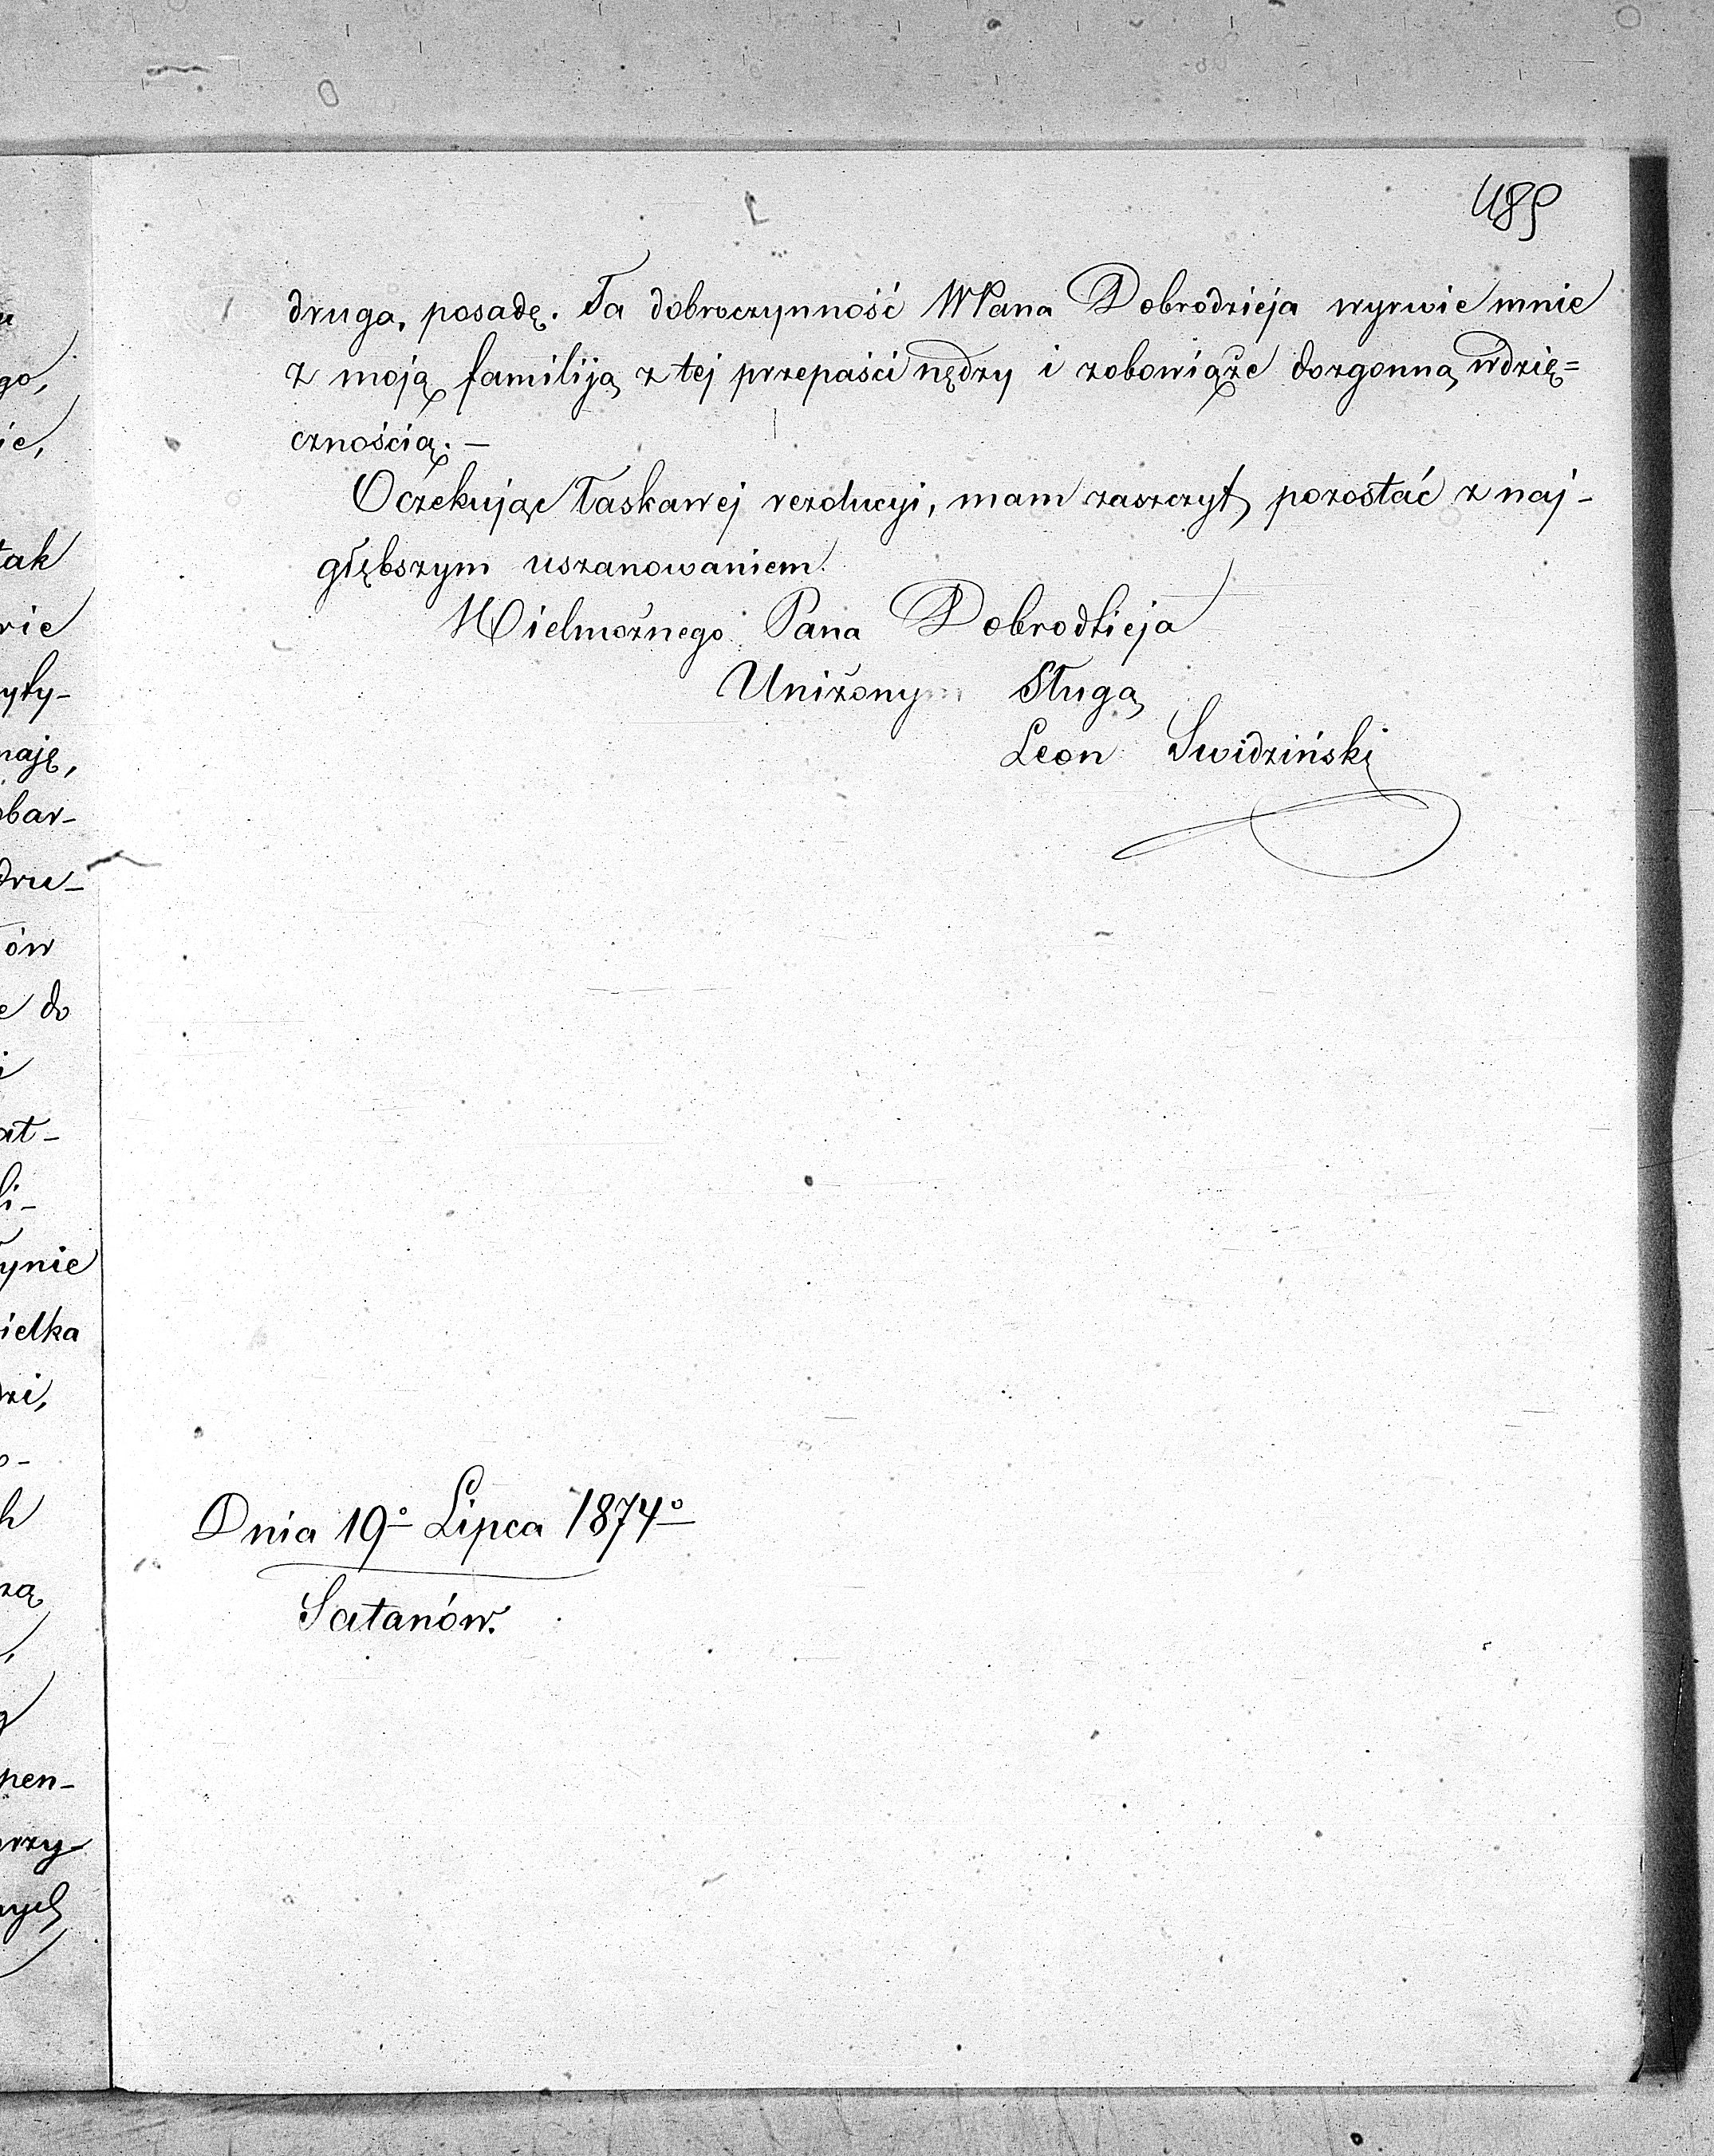 489
drugą posadę. Ta dobroczynność WPana Dobrodzieja wyrwie mnie
z moją familiją z tej przepaści nędzy i zobowiąże dozgonną wdzię=
cznością. —
Oczekując łaskawej rezolucyi, mam zaszczyt pozostać z naj-
głębszym uszanowaniem
Wielmożnego Pana Dobrodzieja
Uniżonym Sługą
Leon Swidziński
Dnia 19º Lipca 1874º
Satanów.
go,
ie,
tak
wie
yty-
naję,
obar-
dru-
ów
e do
i
at-
li-
ynie
ielka
dzi,
o-
h
zą
pen-
przy-
nych